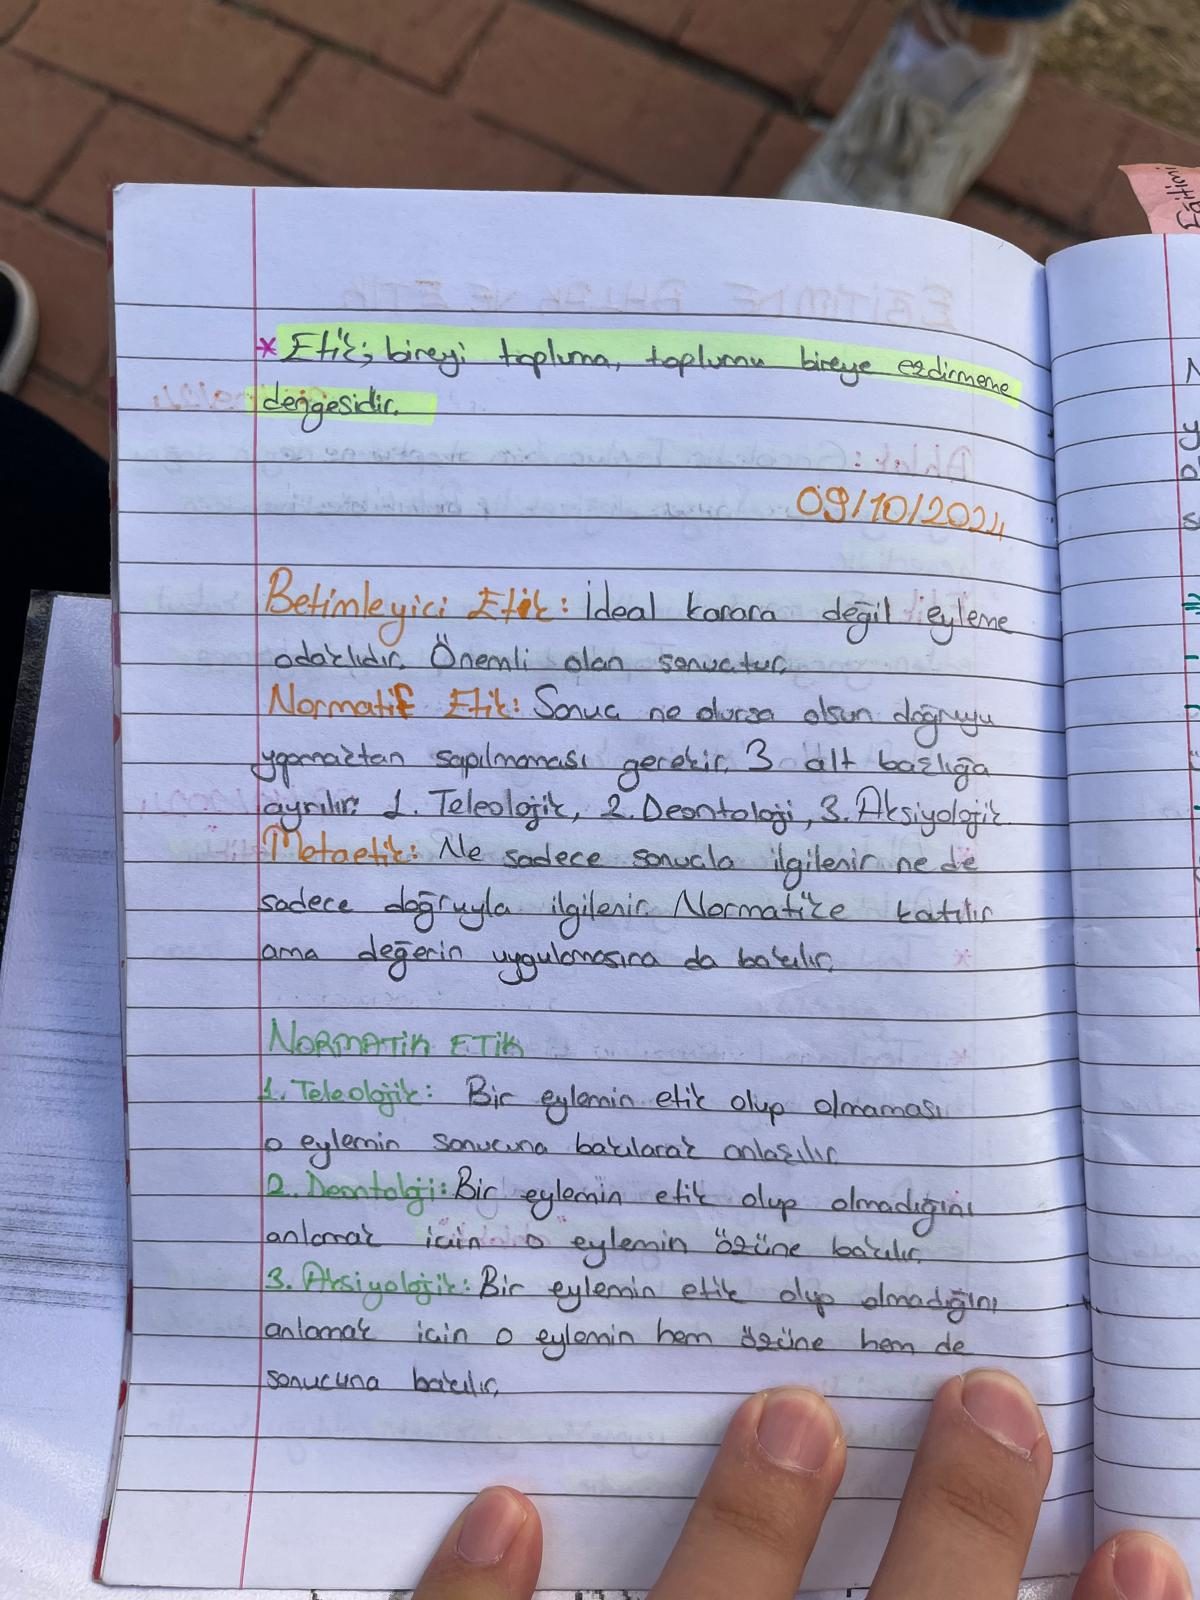 * Etik; bireyi topluma, toplumu bireye ezdirmeme
dengesidir.
09/10/2024
Betimleyici Etik: İdeal karara değil eyleme
odaklıdır. Önemli olan sonuctur.
Normatif Etik: Sonuc ne olursa olsun doğruyu
yapmaktan sapılmaması gerekir. 3 alt başlığa
ayrılır: 1. Teleolojik, 2. Deontoloji, 3. Aksiyolojik
Metaetik: Ne sadece sonucla ilgilenir ne de
sadece doğruyla ilgilenir. Normatike katılır
ama değerin uygulamasına da bakılır.
NORMATİK ETİK
1. Teleolojik: Bir eylemin etik olup olmaması
o eylemin sonucuna bakılarak anlaşılır.
2. Deontoloji: Bir eylemin etik olup olmadığını
anlamak icin o eylemin özüne bakılır.
3. Aksiyolojik: Bir eylemin etik olup olmadığını
anlamak icin o eylemin hem özüne hem de
sonucuna bakılır.